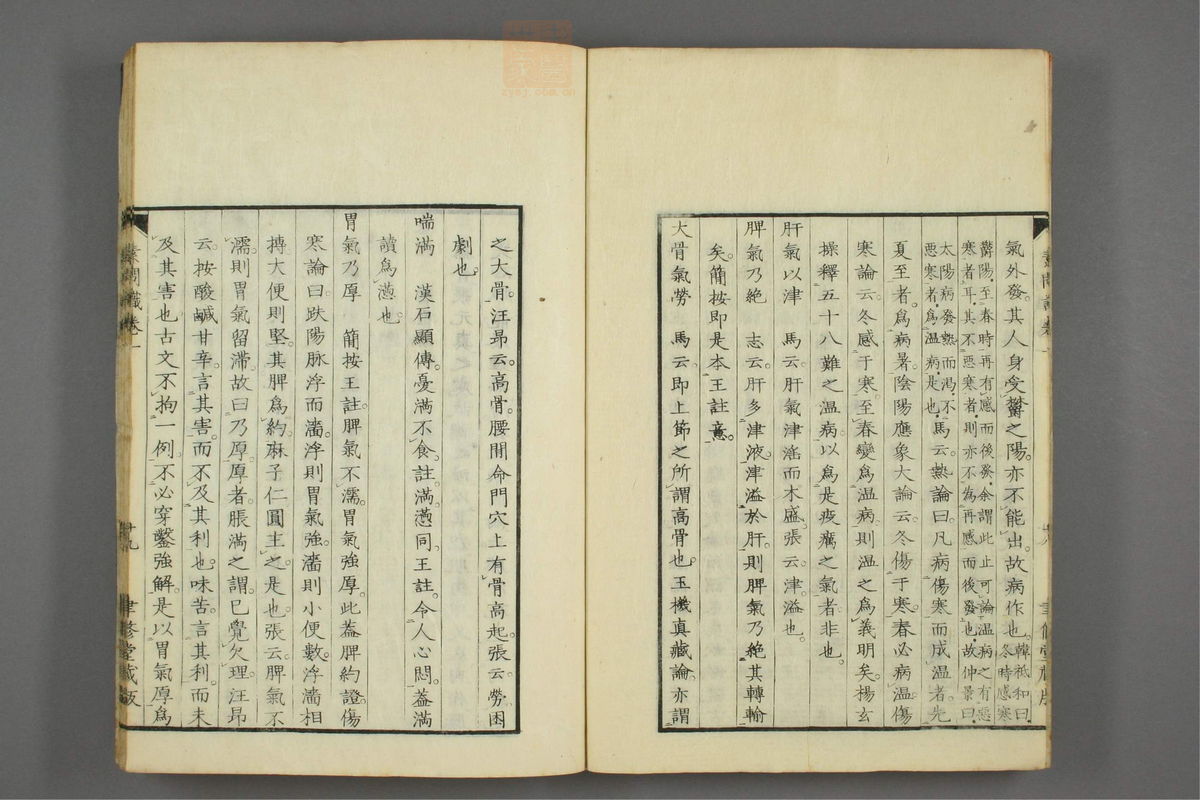 氣外發。其人身受鬱之陽。亦不能出。故病作也。韓祗和曰。冬時感寒
鬱陽。至春時再有感而後發。余謂此止可論温病之有惡
寒者耳。其不惡寒者。則亦不為再感而後發也。故仲景曰。
太陽病發熱而渴。不惡寒者。為温病。是也。
馬云。熱論曰。凡病傷寒而成温者。先
夏至者。為病暑。陰陽應象大論云。冬傷于寒。春必病温。傷
寒論云。冬感于寒。至春變爲温病。則温之爲義明矣。楊玄
操釋五十八難之温病。以爲是疫癘之氣者。非也。
肝氣以津　馬云。肝氣津淫而木盛。張云。津。溢也。
脾氣乃絕　志云。肝多津液。津溢於肝。則脾氣乃絕其轉輸
矣。簡按即是本王註意。
大骨氣勞　馬云。即上節之所謂高骨也。玉機真藏論。亦謂
之大骨。汪昻云。高骨。腰間命門穴上有骨高起。張云。勞。困
劇也。
喘滿　漢石顯傳。憂滿不食。註。滿。懣同。王註。令人心悶。蓋滿
讀爲懣也。
胃氣乃厚　簡按王註。脾氣不濡。胃氣強厚。此蓋脾約證。傷
寒論曰。趺陽脉浮而濇。浮則胃氣強。濇則小便數。浮濇相
搏。大便則堅。其脾爲約。麻子仁圓主之。是也。張云。脾氣不
濡。則胃氣留滯。故曰乃厚。厚者。脹滿之謂。已覺欠理。汪昻
云。按酸鹹甘辛。言其害。而不及其利也。味苦。言其利。而未
及其害也。古文不拘一例。不必穿鑿強解。是以胃氣厚爲
素問識卷一
聿修堂藏版